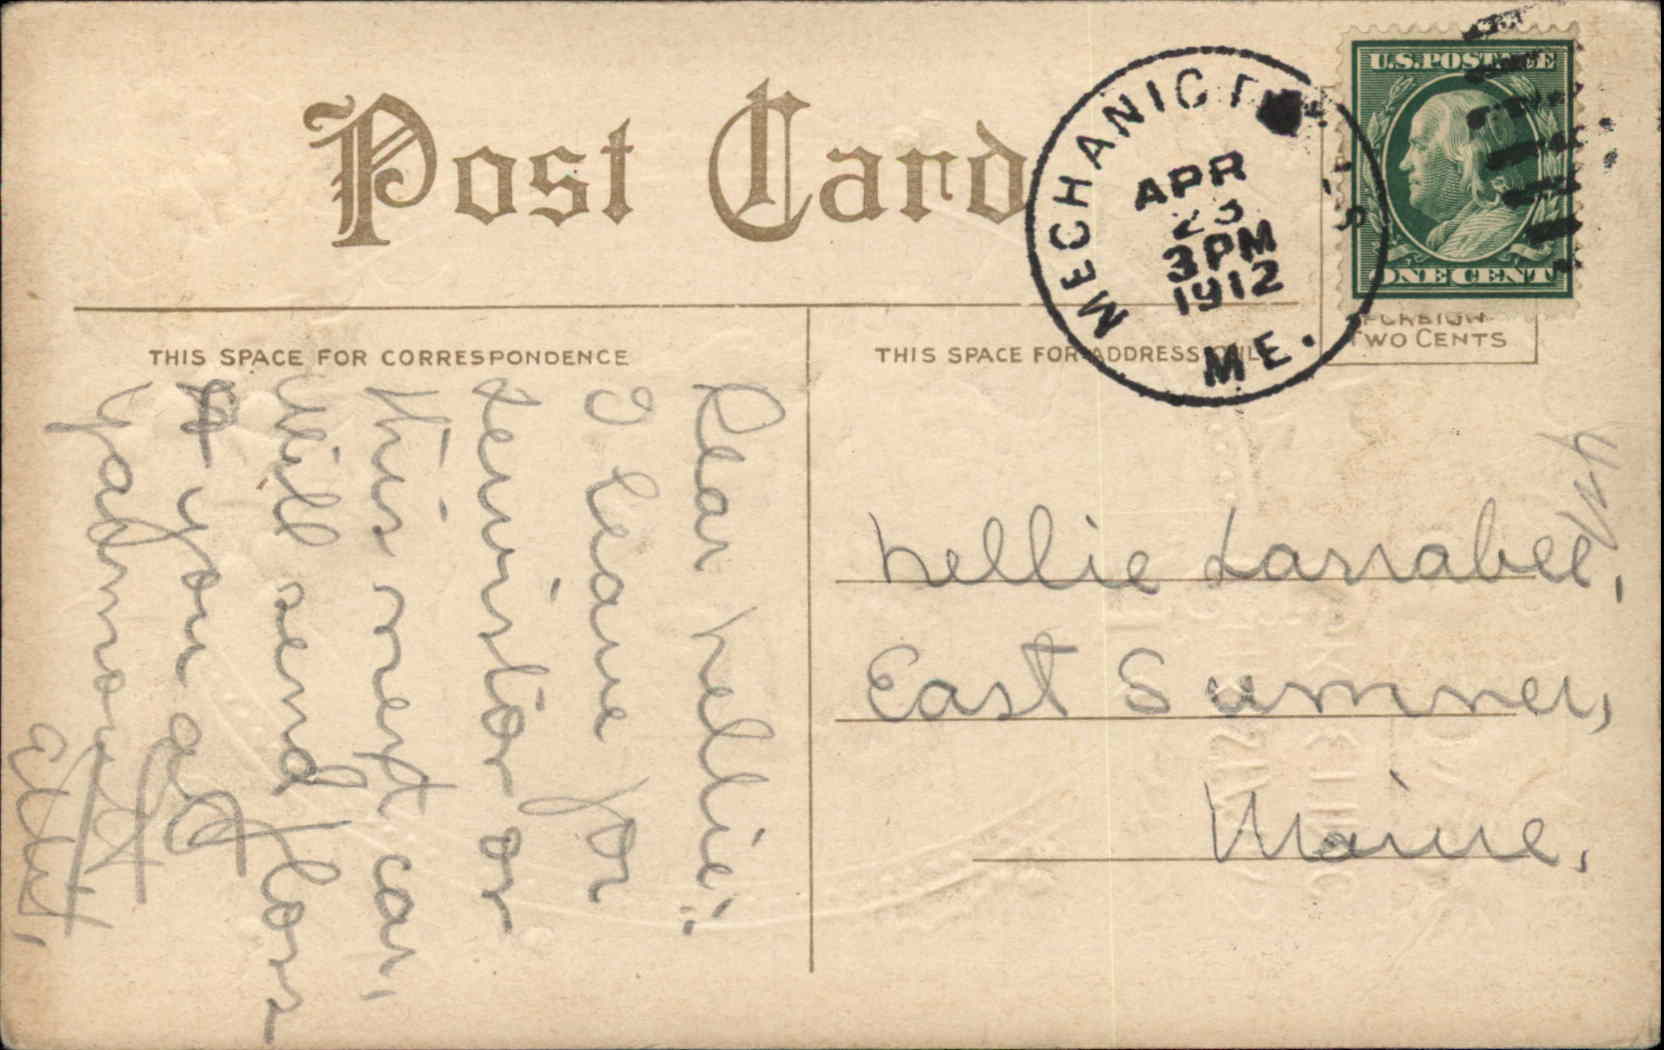 Post Card
MECHANIC FALLS
APR
23
3 PM
1912
ME.
U.S.POSTAGE
ONE CENT
FOREIGN
TWO CENTS
THIS SPACE FOR CORRESPONDENCE
THIS SPACE FOR ADDRESS ONLY
Dear Nellie:
I leave for
Lewiston on
this next car,
Will send for
you at
Nellie Larrabee,
East Sumner,
Maine,